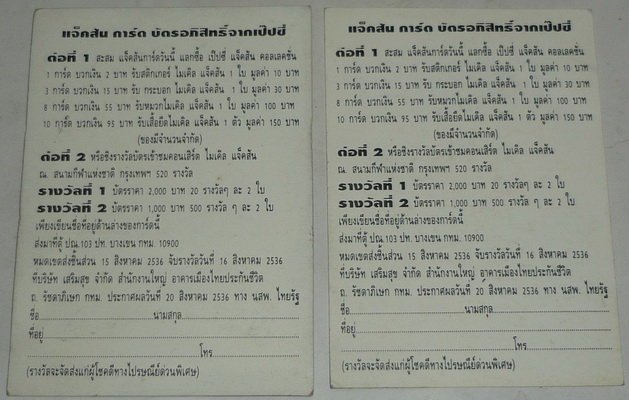 แจ็คสัน การ์ด บัตรอภิสิทธิ์จากเป๊ปซี่
ต่อที่ 1 สะสม แจ็คสันการ์ดวันนี้ แลกซื้อ เป๊ปซี่ แจ็คสัน คอลเลคชั่น
1 การ์ด บวกเงิน 2 บาท รับสติกเกอร์ ไมเคิล แจ็คสัน 1 ใบ มูลค่า 10 บาท
3 การ์ด บวกเงิน 15 บาท รับ กระบอก ไมเคิล แจ็คสัน 1 ใบ มูลค่า 30 บาท
8 การ์ด บวกเงิน 55 บาท รับหมวกไมเคิล แจ็คสัน 1 ใบ มูลค่า 100 บาท
10 การ์ด บวกเงิน 95 บาท รับเสื้อยืดไมเคิล แจ็คสัน 1 ตัว มูลค่า 150 บาท
(ของมีจำนวนจำกัด)
ต่อที่ 2 หรือชิงรางวัลบัตรเข้าชมคอนเสิร์ต ไมเคิล แจ็คสัน
ณ. สนามกีฬาแห่งชาติ กรุงเทพฯ 520 รางวัล
รางวัลที่ 1 บัตรราคา 2,000 บาท 20 รางวัลๆ ละ 2 ใบ
รางวัลที่ 2 บัตรราคา 1,000 บาท 500 รางวัล ๆ ละ 2 ใบ
เพียงเขียนชื่อที่อยู่ด้านล่างของการ์ดนี้
ส่งมาที่ตู้ ปณ.103 ปท. บางเขน กทม. 10900
หมดเขตส่งชิ้นส่วน 15 สิงหาคม 2536 จับรางวัลวันที่ 16 สิงหาคม 2536
ที่บริษัท เสริมสุข จำกัด สำนักงานใหญ่ อาคารเมืองไทยประกันชีวิต
ถ. รัชดาภิเษก กทม. ประกาศผลวันที่ 20 สิงหาคม 2536 ทาง นสพ. ไทยรัฐ
ชื่อ นามสกุล
ที่อยู่
โทร
(รางวัลจะจัดส่งแก่ผู้โชคดีทางไปรษณีย์ด่วนพิเศษ)
แจ็คสัน การ์ด บัตรอภิสิทธิ์จากเป๊ปซี่
ต่อที่ 1 สะสม แจ็คสันการ์ดวันนี้ แลกซื้อ เป๊ปซี่ แจ็คสัน คอลเลคชั่น
1 การ์ด บวกเงิน 2 บาท รับสติกเกอร์ ไมเคิล แจ็คสัน 1 ใบ มูลค่า 10 บาท
3 การ์ด บวกเงิน 15 บาท รับ กระบอก ไมเคิล แจ็คสัน 1 ใบ มูลค่า 30 บาท
8 การ์ด บวกเงิน 55 บาท รับหมวกไมเคิล แจ็คสัน 1 ใบ มูลค่า 100 บาท
10 การ์ด บวกเงิน 95 บาท รับเสื้อยืดไมเคิล แจ็คสัน 1 ตัว มูลค่า 150 บาท
(ของมีจำนวนจำกัด)
ต่อที่ 2 หรือชิงรางวัลบัตรเข้าชมคอนเสิร์ต ไมเคิล แจ็คสัน
ณ. สนามกีฬาแห่งชาติ กรุงเทพฯ 520 รางวัล
รางวัลที่ 1 บัตรราคา 2,000 บาท 20 รางวัลๆ ละ 2 ใบ
รางวัลที่ 2 บัตรราคา 1,000 บาท 500 รางวัล ๆ ละ 2 ใบ
เพียงเขียนชื่อที่อยู่ด้านล่างของการ์ดนี้
ส่งมาที่ตู้ ปณ.103 ปท. บางเขน กทม. 10900
หมดเขตส่งชิ้นส่วน 15 สิงหาคม 2536 จับรางวัลวันที่ 16 สิงหาคม 2536
ที่บริษัท เสริมสุข จำกัด สำนักงานใหญ่ อาคารเมืองไทยประกันชีวิต
ถ. รัชดาภิเษก กทม. ประกาศผลวันที่ 20 สิงหาคม 2536 ทาง นสพ. ไทยรัฐ
ชื่อ นามสกุล
ที่อยู่
โทร
(รางวัลจะจัดส่งแก่ผู้โชคดีทางไปรษณีย์ด่วนพิเศษ)